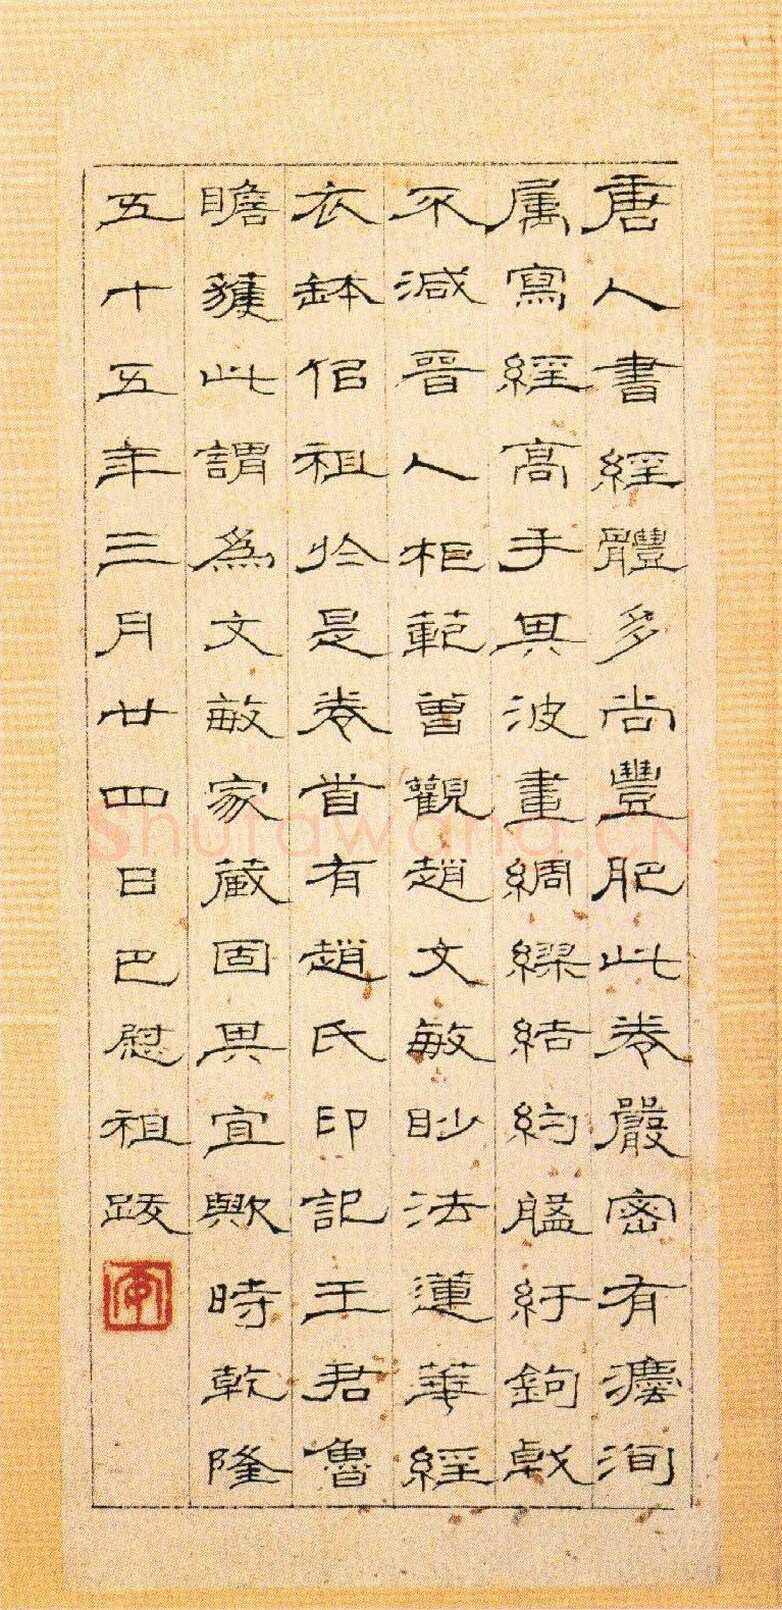 唐人書經體多尚豐肥此卷嚴密有灋洵
属寫經高手其波畫綢繆結約紆鉤戟
不減晉人柜範曾觀趙文敏眇法蓮華經
衣缽佀祖於是卷首有趙氏印記王君魯
瞻獲此謂為文敏家藏固其宜歟時乾隆
五十五年三月廿四日巴慰祖跋
shufawang.CN